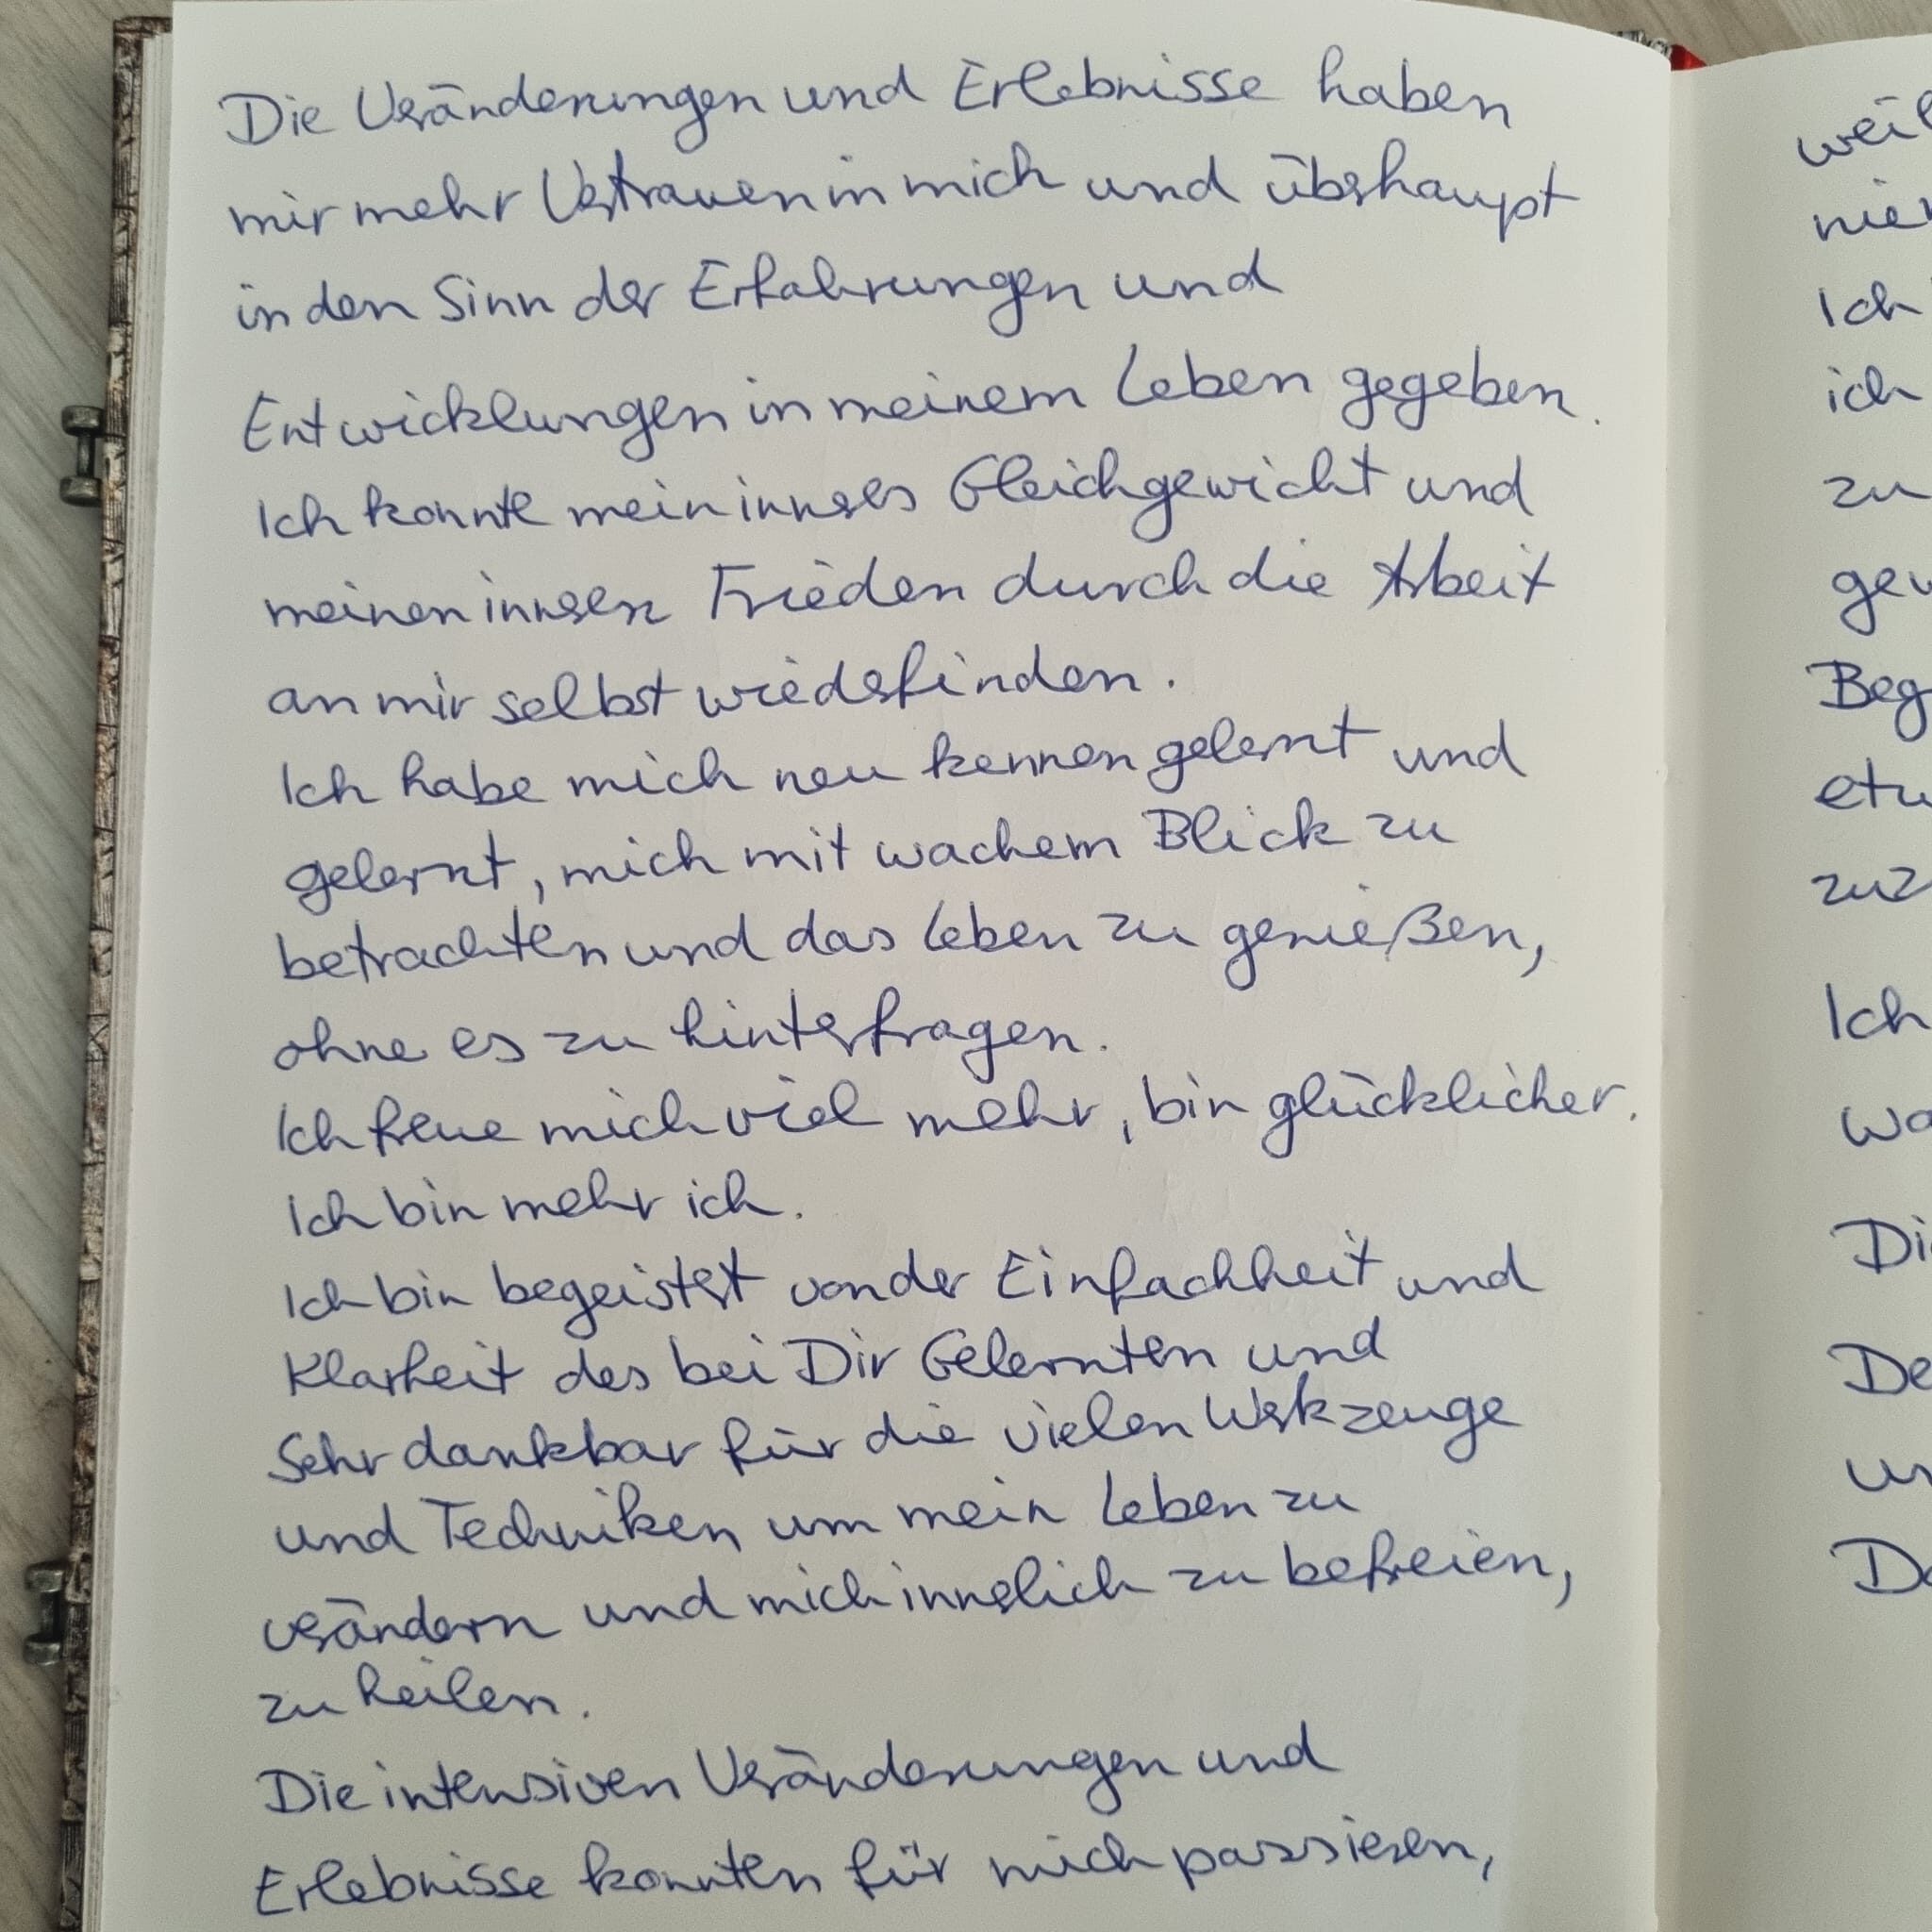 Die Veränderungen und Erlebnisse haben
mir mehr Vertrauen in mich und überhaupt
in den Sinn der Erfahrungen und
Entwicklungen in meinem Leben gegeben.
Ich konnte mein inneres Gleichgewicht und
meinen inneren Frieden durch die Arbeit
an mir selbst wiederfinden.
Ich habe mich neu kennen gelernt und
gelernt, mich mit wachem Blick zu
betrachten und das Leben zu genießen,
ohne es zu hinterfragen.
Ich freue mich viel mehr, bin glücklicher.
Ich bin mehr ich.
Ich bin begeistert von der Einfachheit und
Klarheit des bei Dir Gelernten und
Sehr dankbar für die vielen Werkzeuge
und Techniken um mein Leben zu
verändern und mich innerlich zu befreien,
zu heilen.
Die intensiven Veränderungen und
Erlebnisse konnten für mich passieren,
weil
Ich
ich
zu
Ich